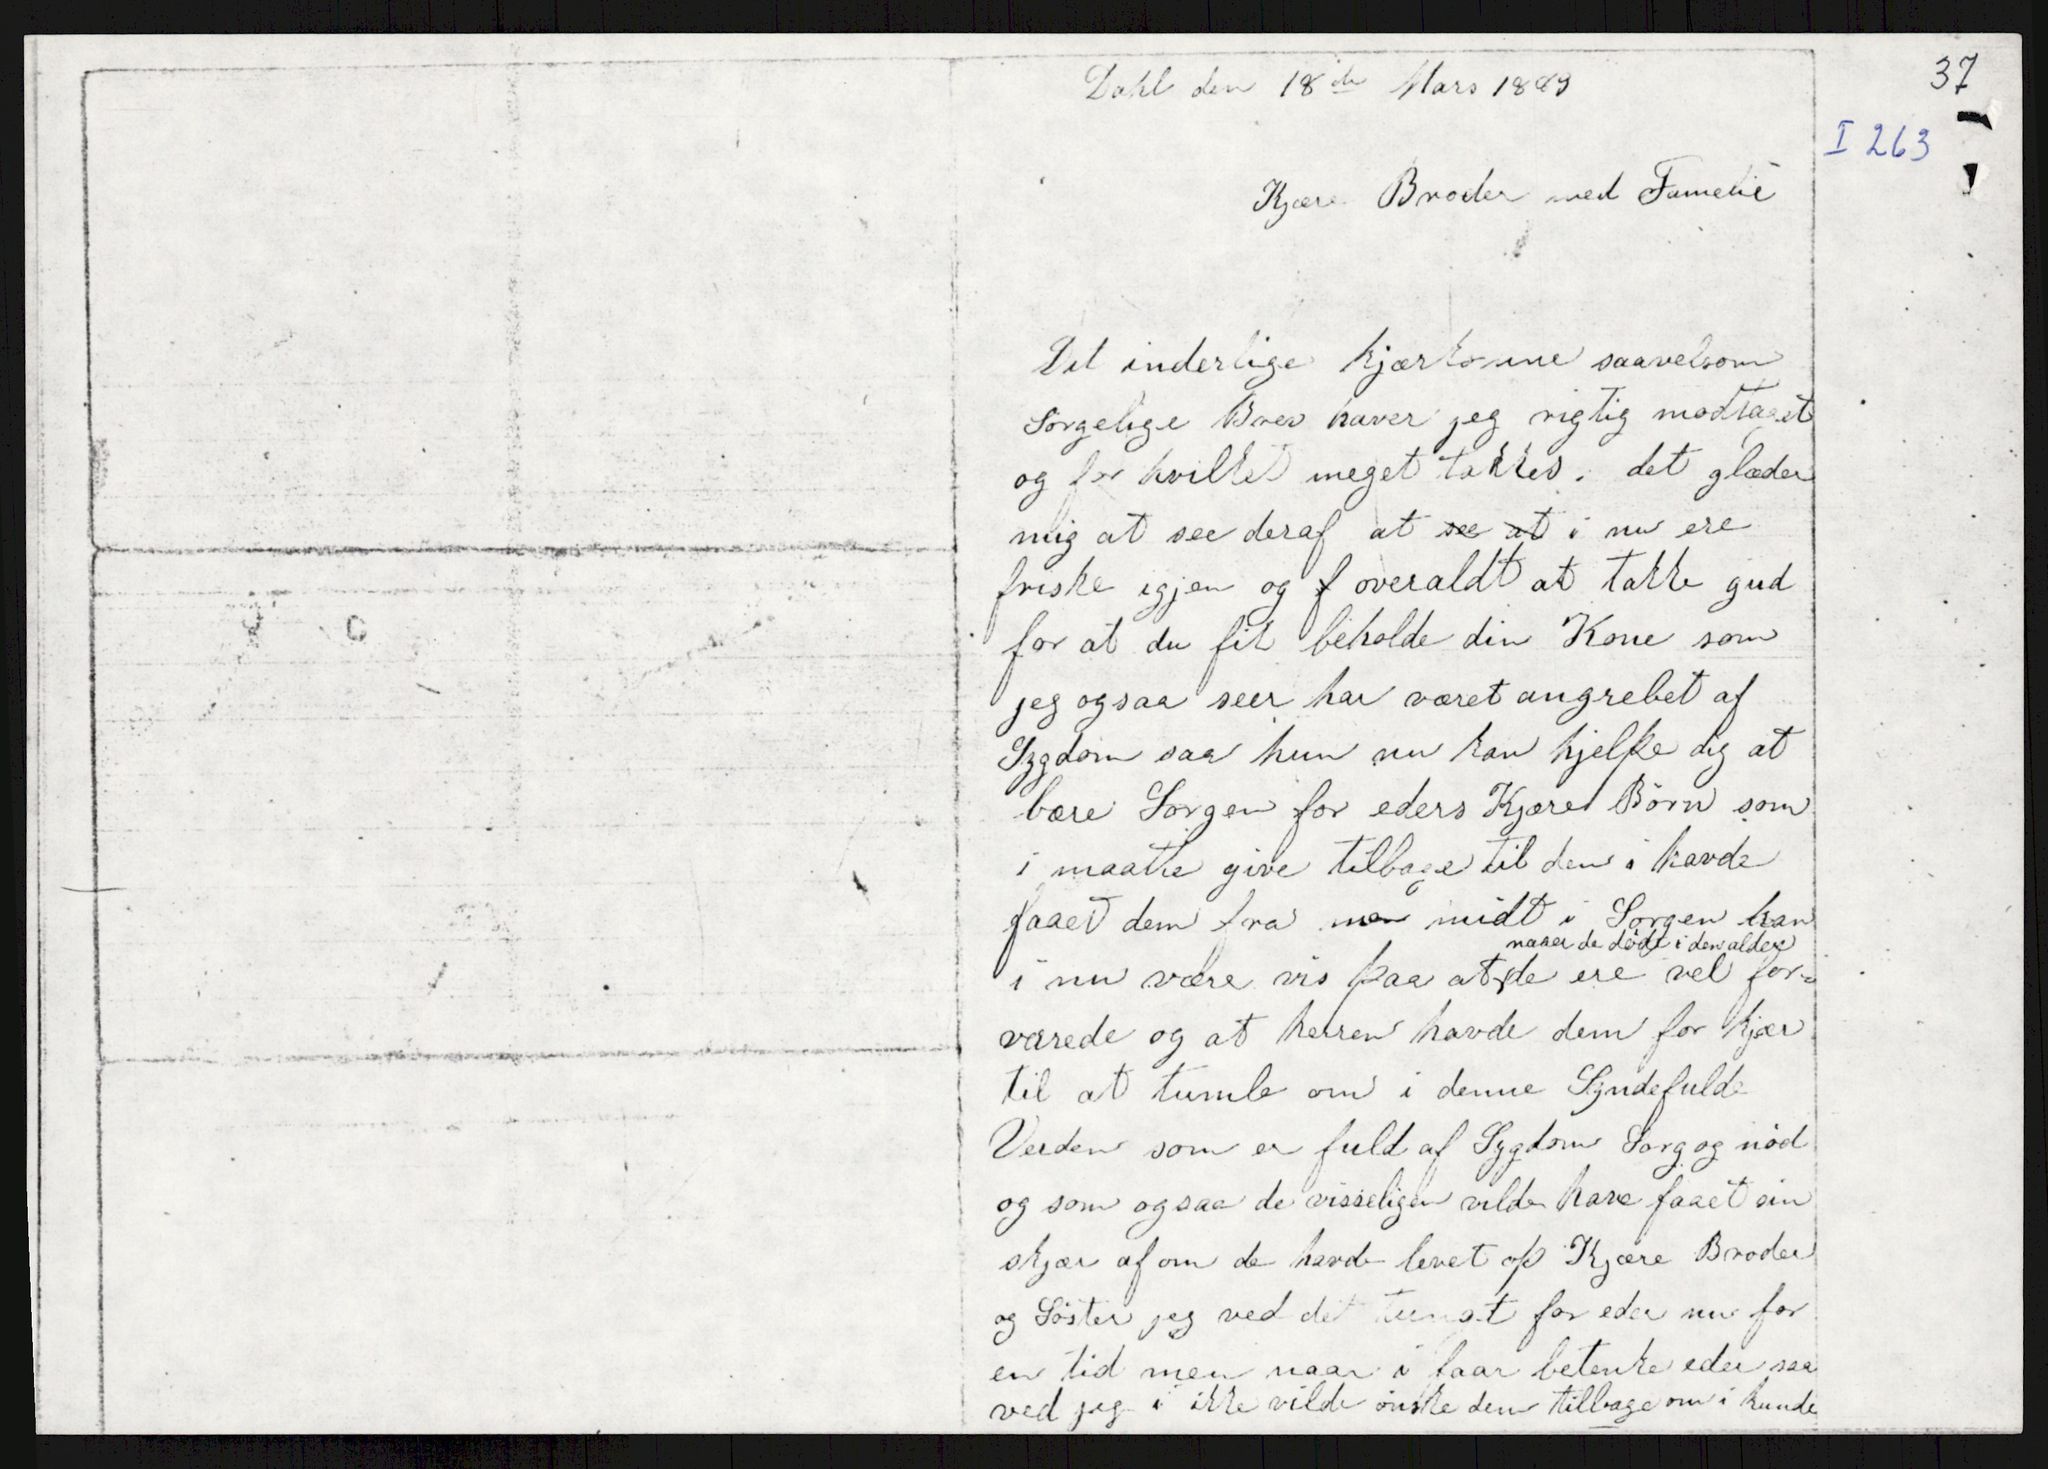 37
I 263
Dahl den 18de Mars 1889
Kjære Broder med Famelie
Dit inderlige kjærkomne saavelsom
Sørgelige Brev haver jeg rigtig modtaget
og for hvilket meget takkes. det glæder
mig at see deraf at see at i nu ere
friske igjen og f overaldt at takke gud
for at du fik beholde din Kone som
jeg ogsaa seer har været angrebet af
Sygdom saa hun nu kan hjelpe dig at
bære Sorgen for eders Kjære Börn som
i maatte give tilbage til den i havde
faaet dem fra men midt i Sorgen kan
naaer de døde i den alder
i nu være vis paa at de ere vel for-
varede og at herren havde dem for kjær
til at tumle om i denne Syndefulde
Verden som er fuld af Sygdom Sorg og nød
og som ogsaa de visseligen vilde have faaet sin
skjær af om de havde levet op Kjære Broder
og Söster jeg ved det tungt for eder nu for
en tid men naar i faar betenke eder saa
ved jeg i ikke vilde önske dem tilbage om i kunde